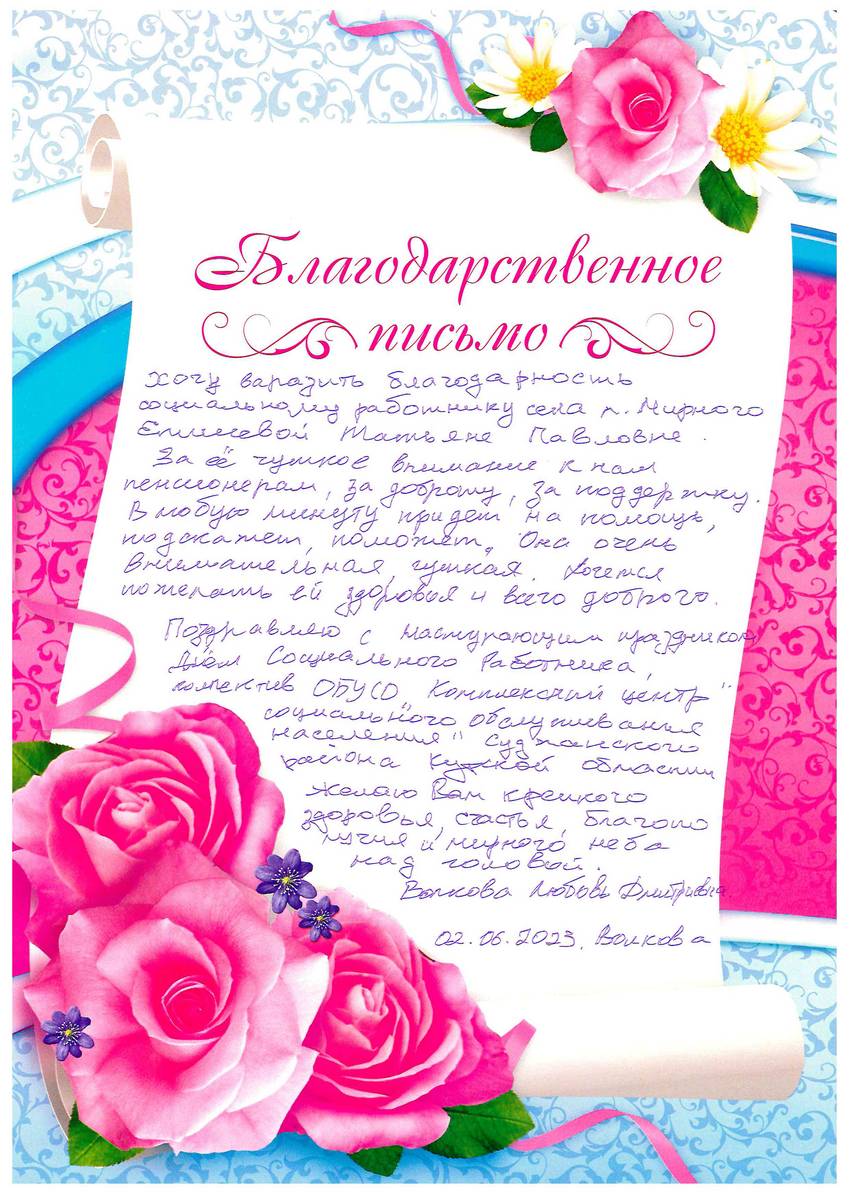 Благодарственное
письмо
Хочу варазить благодарность
социальному работнику села п. Мирного
Татьяне Павловне.
За её чуткое внимание к нам
пенсионерам, за доброту, за поддержку.
В любую минуту придет на помощь,
подскажет, поможет. Она очень
внимательная, чуткая. Хочется
пожелать ей здоровья и всего доброго.
Поздравляю с наступающим праздником
Днём Социального Работника,
коллектив ОБУСО "Комплексный центр
социального обслуживания
населения" Суджанского
района Курской области
Желаю Вам крепкого
здоровья, счастья, благопо
лучия и мирного неба
над головой.
Волкова Любовь Дмитриевна.
02.06.2023. Волкова